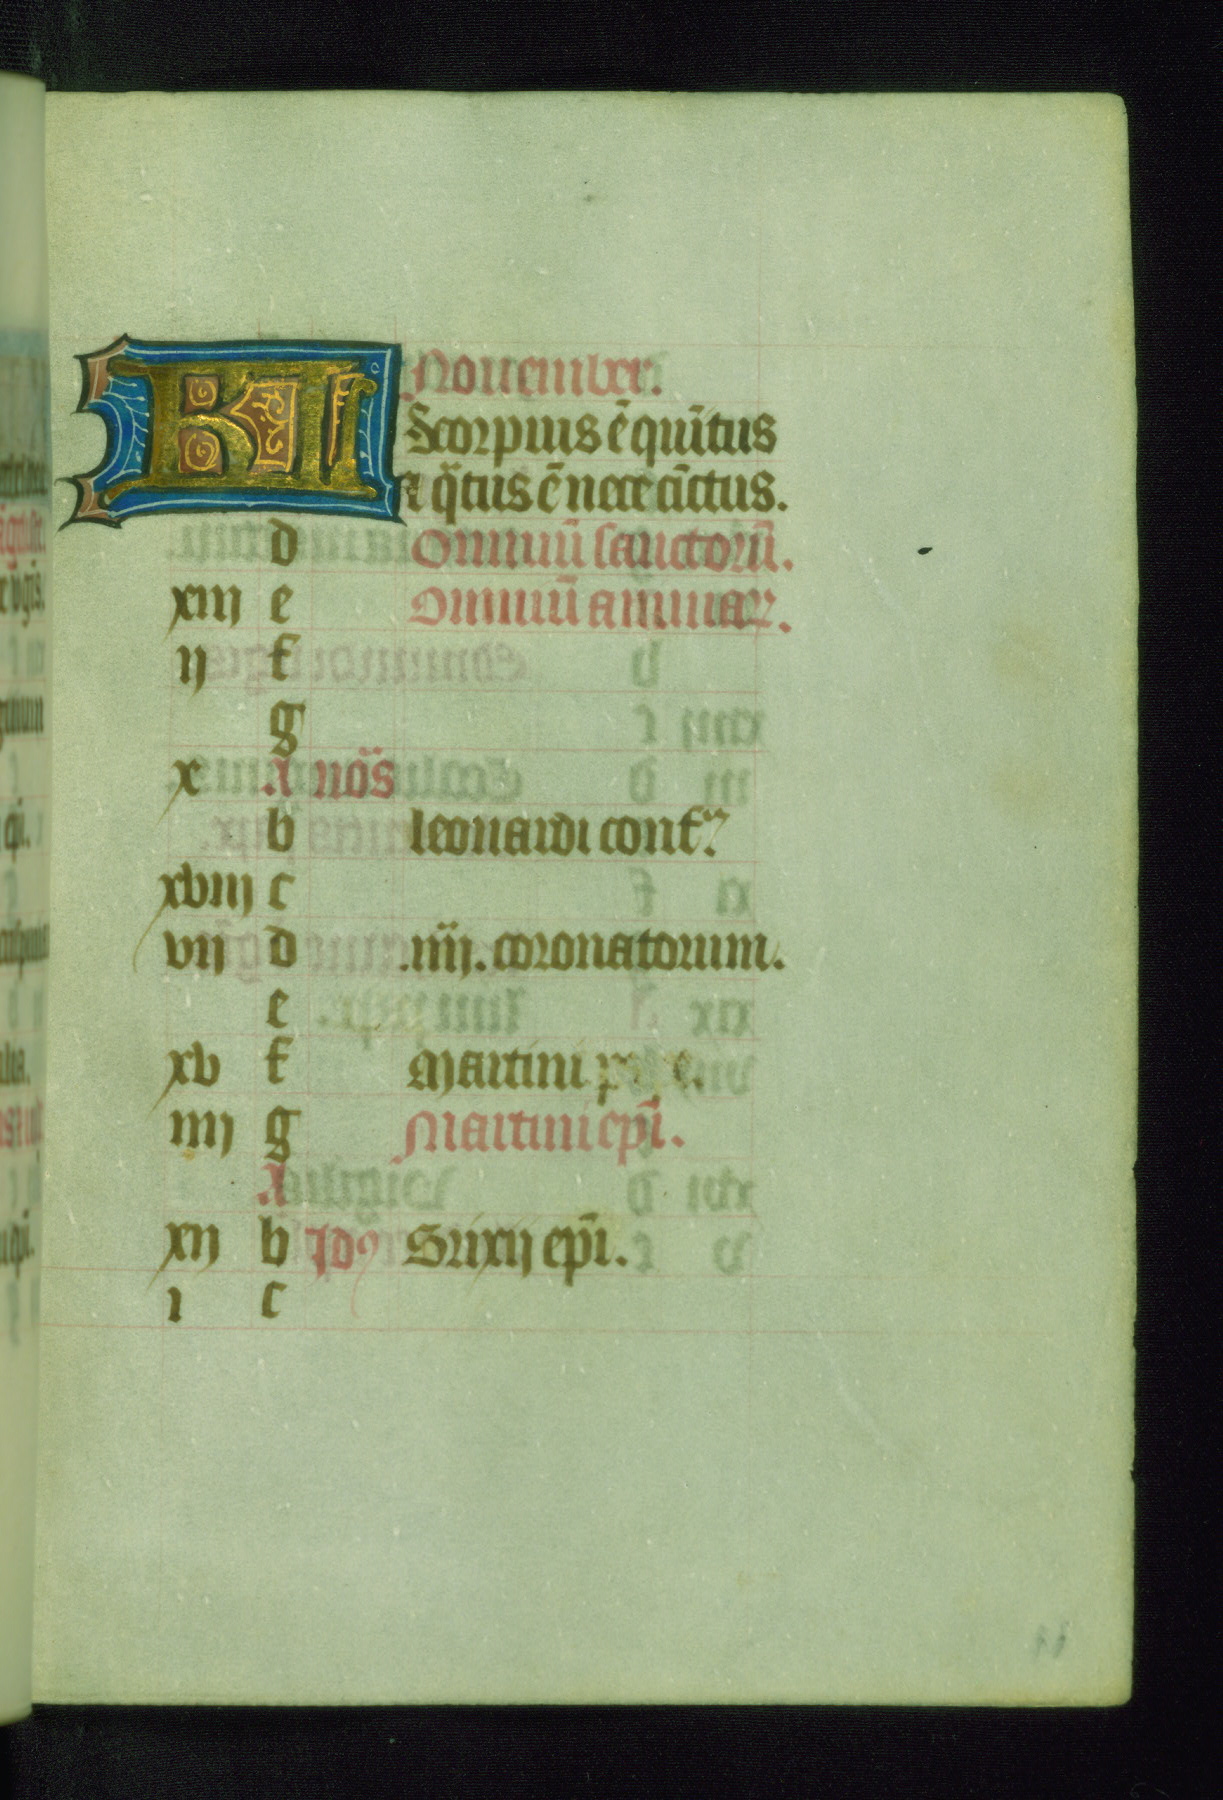 KL Nouember.
Scorpius ē quītus
A q̄tus ē nece cīctus.
d Omniū sanctorū.
xiij e Omniū animaꝝ.
ij f
g
x A nōs
b leonardi conf.
xviij c
vij d .iiij. coronatorum.
e
xv f Martini
iiij g Martini ep̄i.
A
xij b Idꝰ Brixij ep̄i.
i c